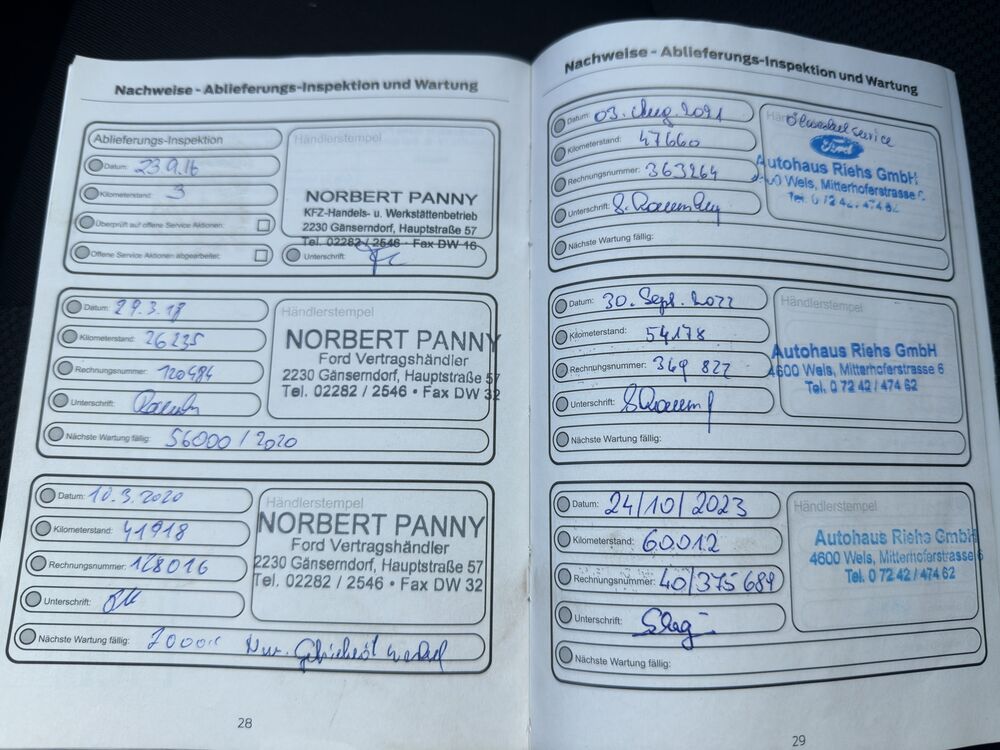 Nachweise - Ablieferungs-Inspektion und Wartung
Ablieferungs-Inspektion
Datum: 23.9.16
Kilometerstand: 3
Überprüft auf offene Service Aktionen:
Offene Service Aktionen abgearbeitet:
Händlerstempel
NORBERT PANNY
KFZ-Handels- u. Werkstättenbetrieb
2230 Gänserndorf, Hauptstraße 57
Tel. 02282 / 2546 • Fax DW 16
Unterschrift:
Datum: 29.3.18
Kilometerstand: 26235
Rechnungsnummer: 120484
Unterschrift:
Nächste Wartung fällig: 56000 / 2020
Händlerstempel
NORBERT PANNY
Ford Vertragshändler
2230 Gänserndorf, Hauptstraße 57
Tel. 02282 / 2546 • Fax DW 32
Datum: 10.3.2020
Kilometerstand: 41918
Rechnungsnummer: 128016
Unterschrift:
Nächste Wartung fällig:
Händlerstempel
NORBERT PANNY
Ford Vertragshändler
2230 Gänserndorf, Hauptstraße 57
Tel. 02282 / 2546 • Fax DW 32
28
Nachweise - Ablieferungs-Inspektion und Wartung
Datum: 03. Aug. 2021
Kilometerstand: 47660
Rechnungsnummer: 363264
Unterschrift:
Nächste Wartung fällig:
Ölwechselservice
Ford
Autohaus Riehs GmbH
Wels, Mitterhoferstrasse
Tel. 0 72 42 / 474 62
Datum: 30. Sept. 2022
Kilometerstand: 54178
Rechnungsnummer: 369 827
Unterschrift:
Nächste Wartung fällig:
Händlerstempel
Autohaus Riehs GmbH
4600 Wels, Mitterhoferstrasse 6
Tel. 0 72 42 / 474 62
Datum: 24/10/2023
Kilometerstand: 60.012
Rechnungsnummer: 40/375684
Unterschrift:
Nächste Wartung fällig:
Händlerstempel
Autohaus Riehs GmbH
4600 Wels, Mitterhoferstrasse 6
Tel. 0 72 42 / 474 62
29